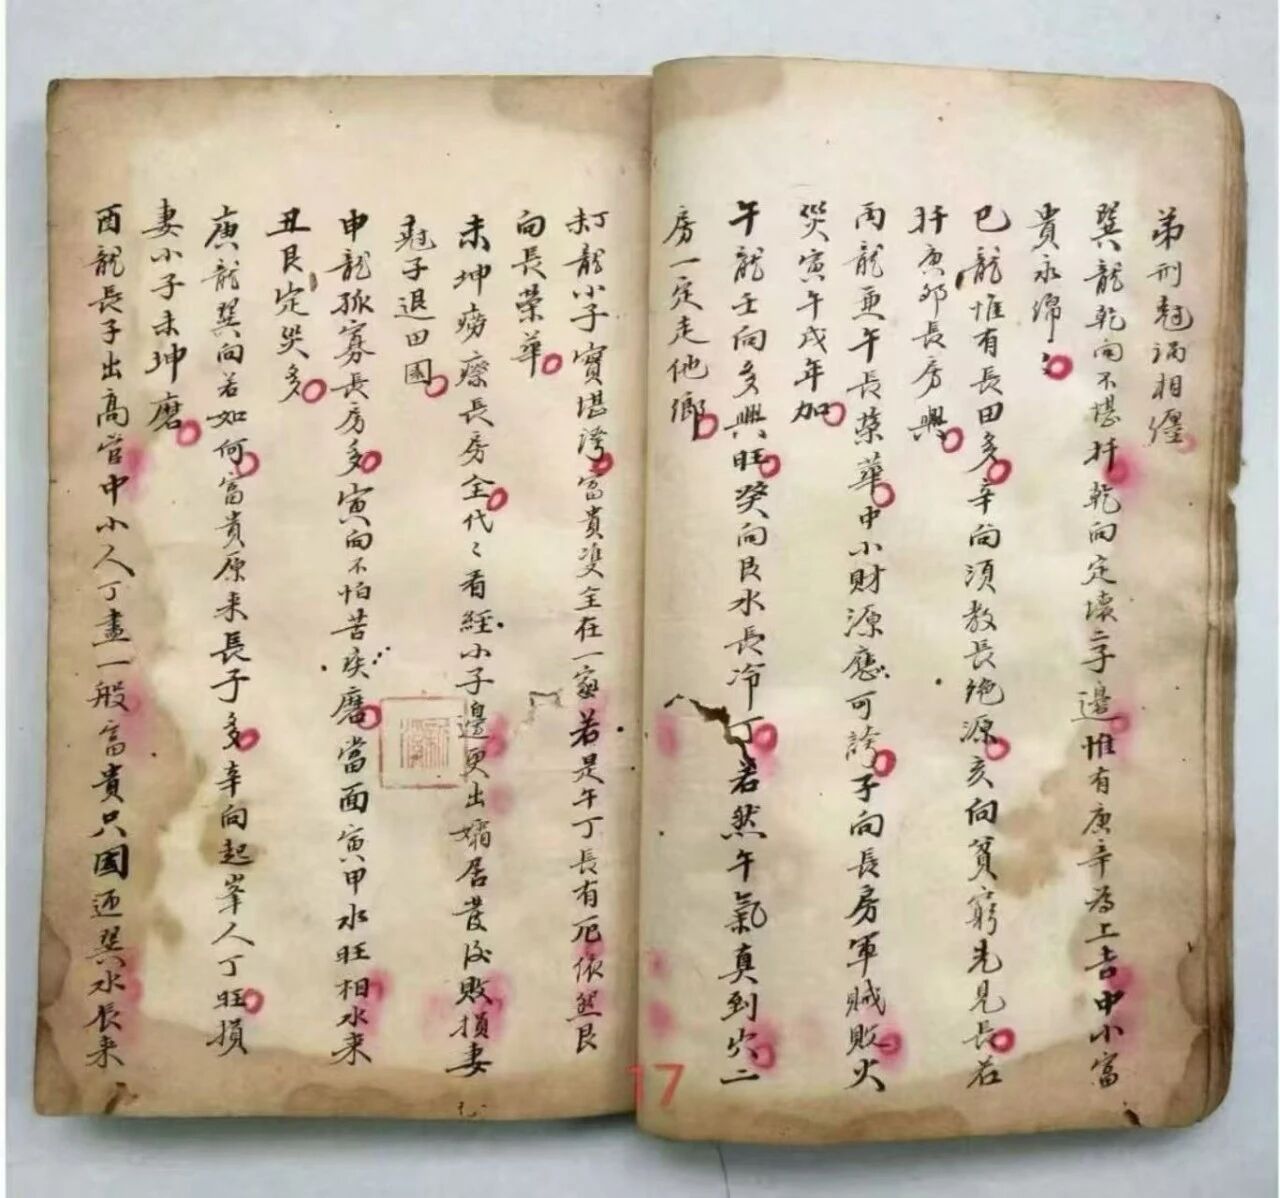 弟刑尅禍相纏
巽龍乾向不堪扦乾向定壊二子邉惟有庚辛為上吉中小富
貴永綿
巳龍惟有長田多辛向須教長絶源亥向貧窮先見長若
扦庚卯長房興
丙龍亜午長荣華中小財源應可誇子向長房軍賊敗火
災寅午戌年加
午龍壬向多興旺癸向艮水長冷丁若然午氣真到穴二
房一定走他鄉
龍小子實堪誇富貴双全在一家若是午丁長有厄依然艮
向長荣華
未坤癆瘵長房全代々看經小子邉更出孀居敗損妻
尅子退田園
申龍孤寡長房多寅向不怕苦疾磨當面寅甲水旺相水来
丑艮定災多
庚龍巽向若如何富貴原来長子多辛向起峯人丁旺損
妻小子未坤磨
酉龍長子出高官中小人丁盡一般富貴只因迊巽水長来
17